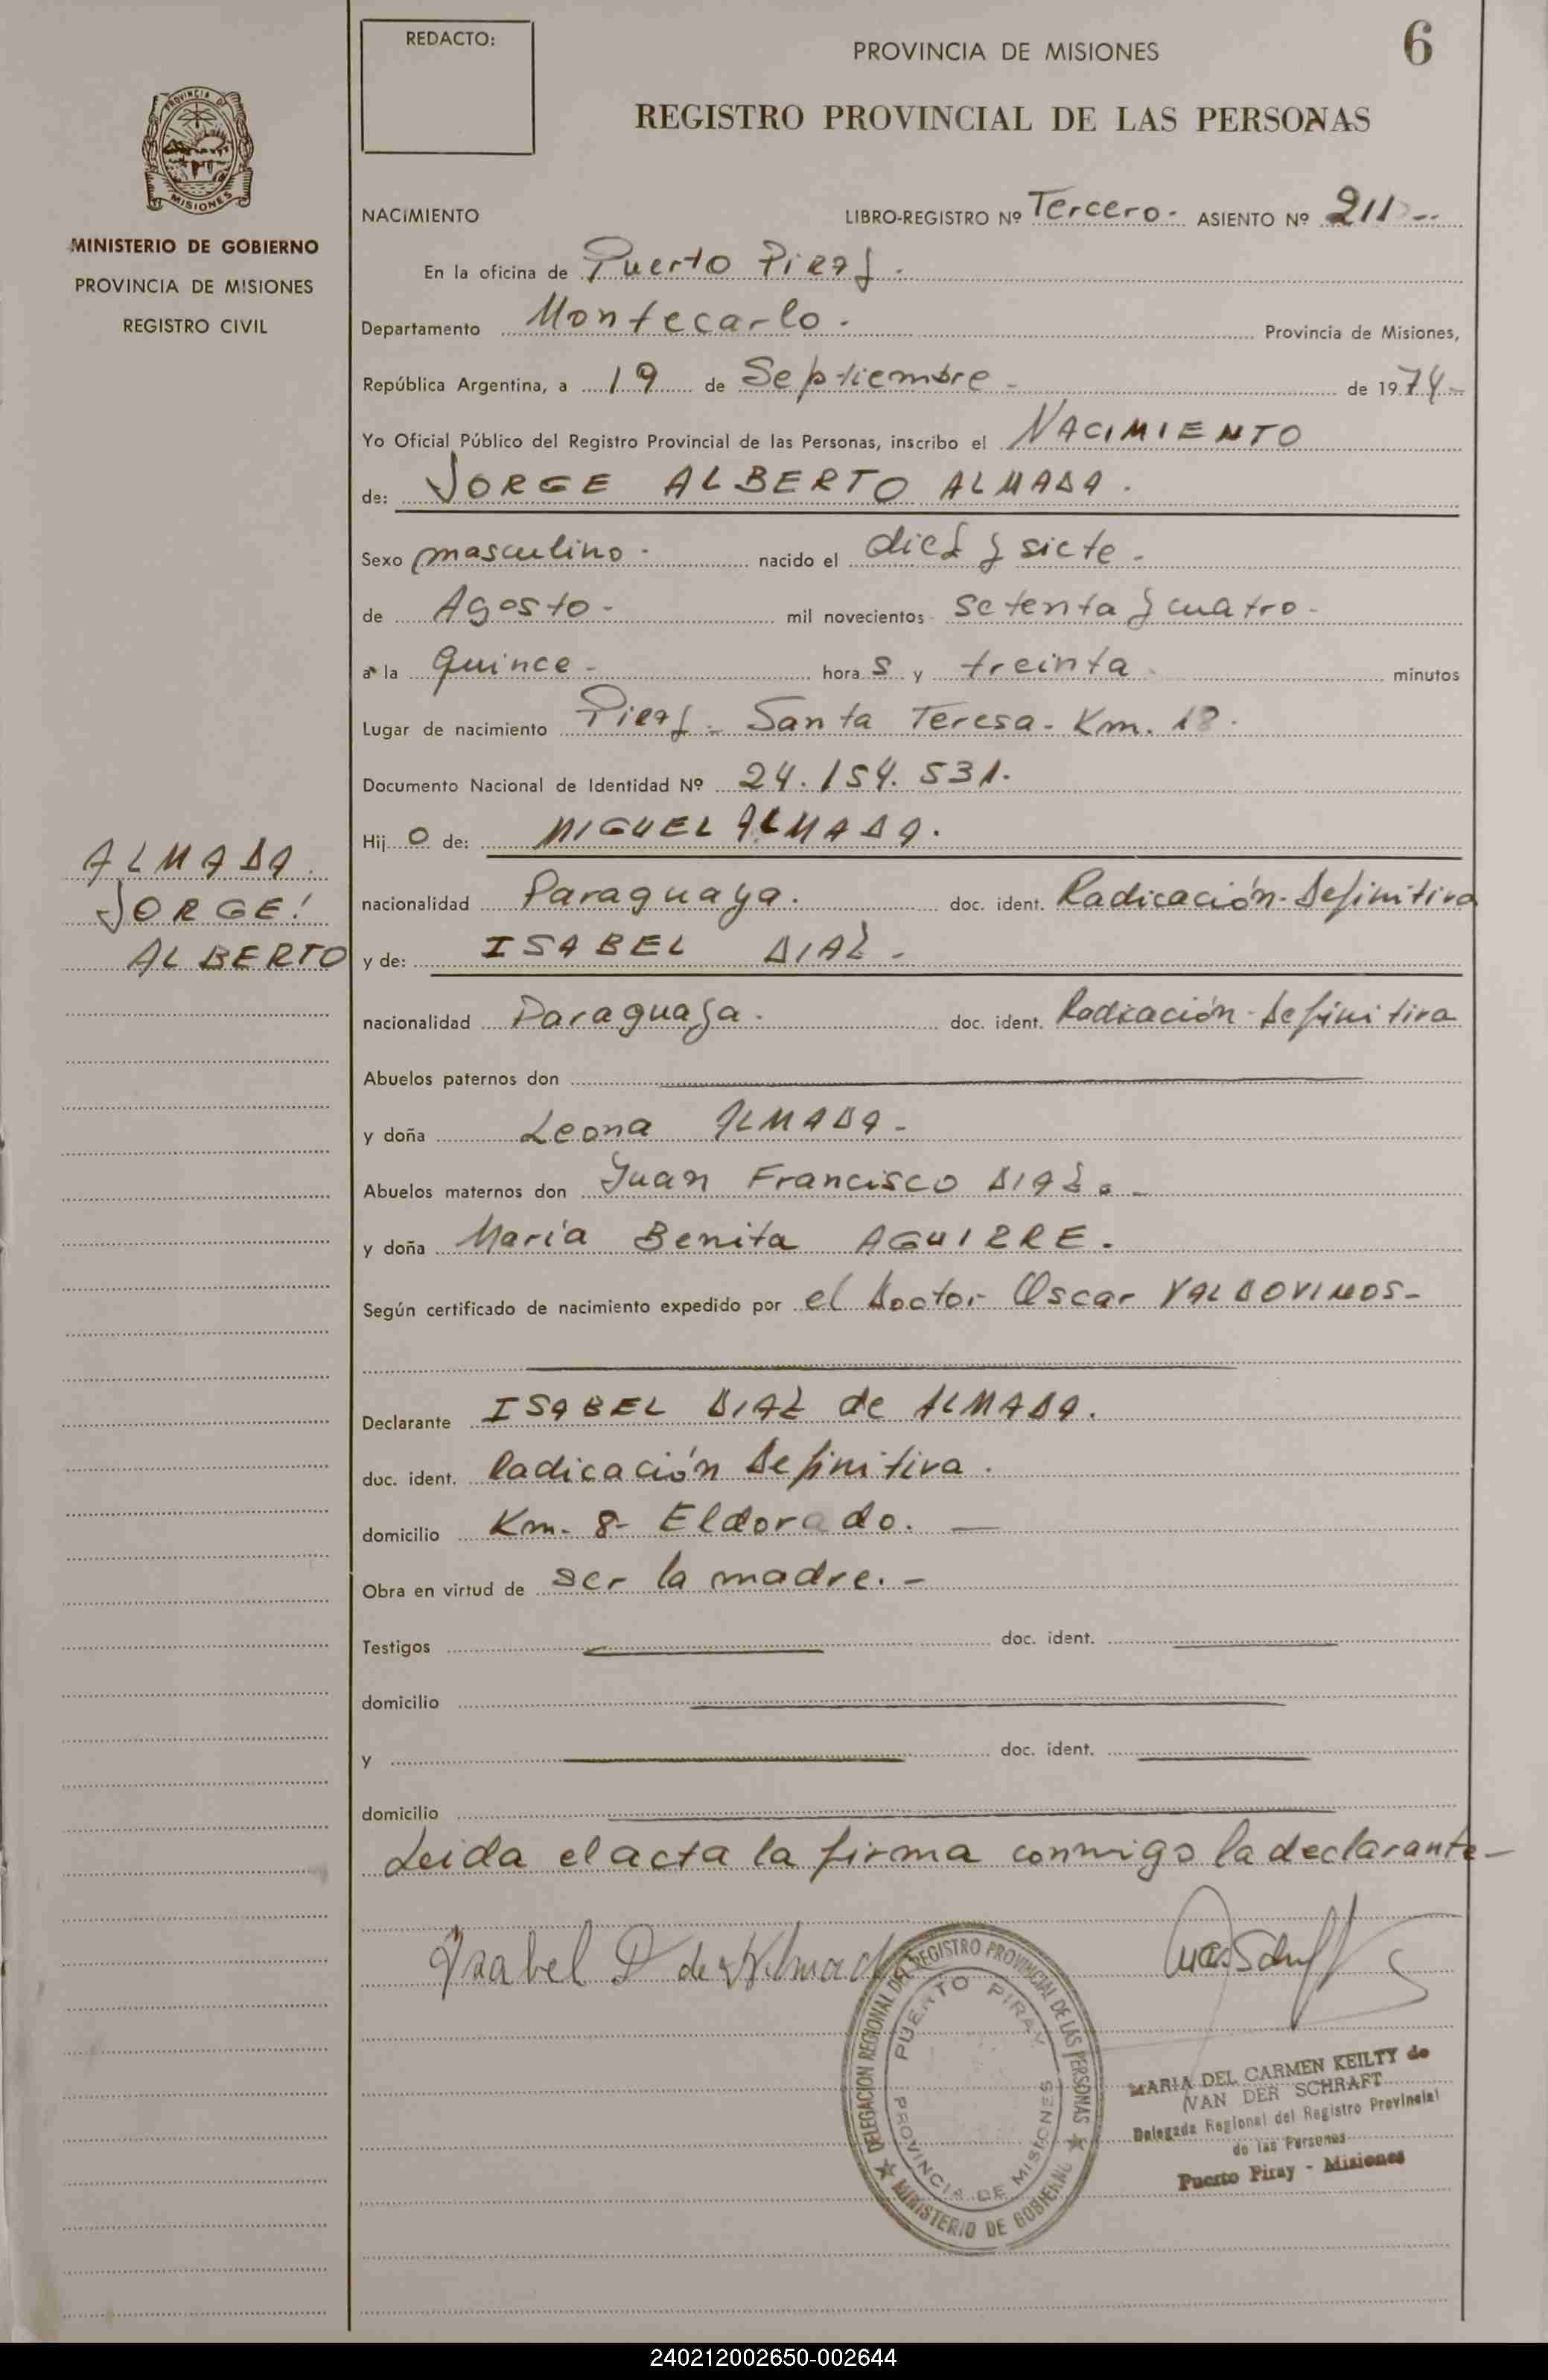 REDACTO:
PROVINCIA DE MISIONES
6
REGISTRO PROVINCIAL DE LAS PERSONAS
PROVINCIA DE
MISIONES
MINISTERIO DE GOBIERNO
PROVINCIA DE MISIONES
REGISTRO CIVIL
NACIMIENTO LIBRO-REGISTRO Nº Tercero.- ASIENTO Nº 211 --
En la oficina de Puerto Piray.
Departamento Montecarlo. Provincia de Misiones,
República Argentina, a 19 de Septiembre - de 1974-
Yo Oficial Público del Registro Provincial de las Personas, inscribo el NACIMIENTO
de: JORGE ALBERTO ALMADA.
Sexo masculino. nacido el diez y siete.
de Agosto. mil novecientos setenta y cuatro.
a la quince. horas y treinta minutos
Lugar de nacimiento Piray - Santa Teresa - Km. 18.
Documento Nacional de Identidad Nº 24.154.531.
Hijo de: MIGUEL ALMADA.
ALMADA.
JORGE
ALBERTO
nacionalidad Paraguaya. doc. ident. Radicación-Definitiva
y de: ISABEL DIAZ.
nacionalidad Paraguaya. doc. ident. Radicación-Definitiva
Abuelos paternos don
y doña Leona ALMADA.
Abuelos maternos don Juan Francisco DIAZ.-
y doña María Benita AGUIRRE.
Según certificado de nacimiento expedido por el Doctor Oscar VALDOVINOS-
Declarante ISABEL DIAZ de ALMADA.
doc. ident. Radicación Definitiva.
domicilio Km. 8- Eldorado. —
Obra en virtud de ser la madre.-
Testigos doc. ident.
domicilio
y doc. ident.
domicilio
Leida el acta la firma conmigo la declarante-
Isabel D de Almada
DELEGACION REGIONAL DEL REGISTRO PROVINCIAL DE LAS PERSONAS
PUERTO PIRAY
PROVINCIA DE MISIONES
MINISTERIO DE GOBIERNO
MARIA DEL CARMEN KEILTY de
VAN DER SCHRAFT
Delegada Regional del Registro Provincial
de las Personas
Puerto Piray - Misiones
240212002650-002644